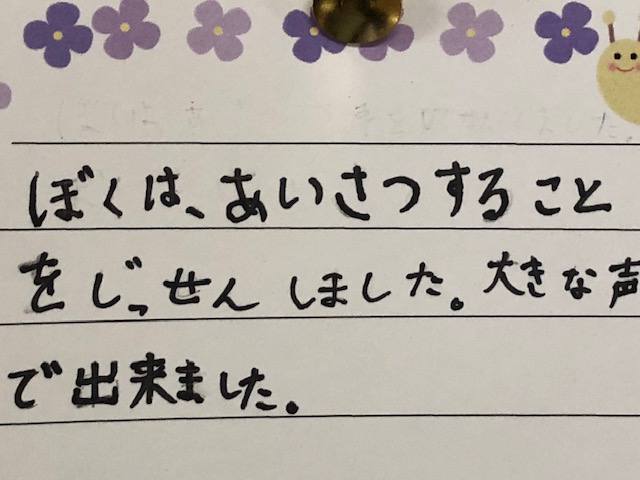 ぼくは、あいさつすること
をじっせんしました。大きな声
で出来ました。